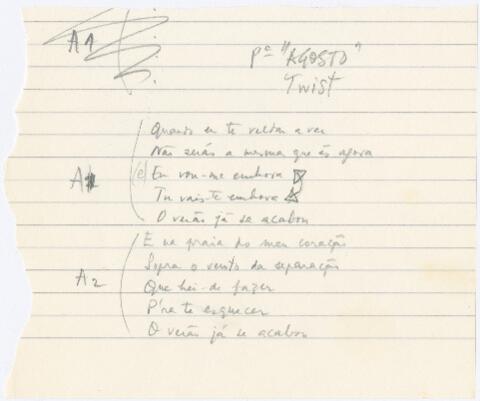 A1
Pª "AGOSTO"
Twist
Quando eu te voltar a ver
Não serás a mesma que és agora
(e) Eu vou-me embora
A1
Tu vais-te embora
O verão já se acabou
E na praia do meu coração
Sopra o vento da separação
A2
Que hei-de fazer
P'ra te esquecer
O verão já se acabou